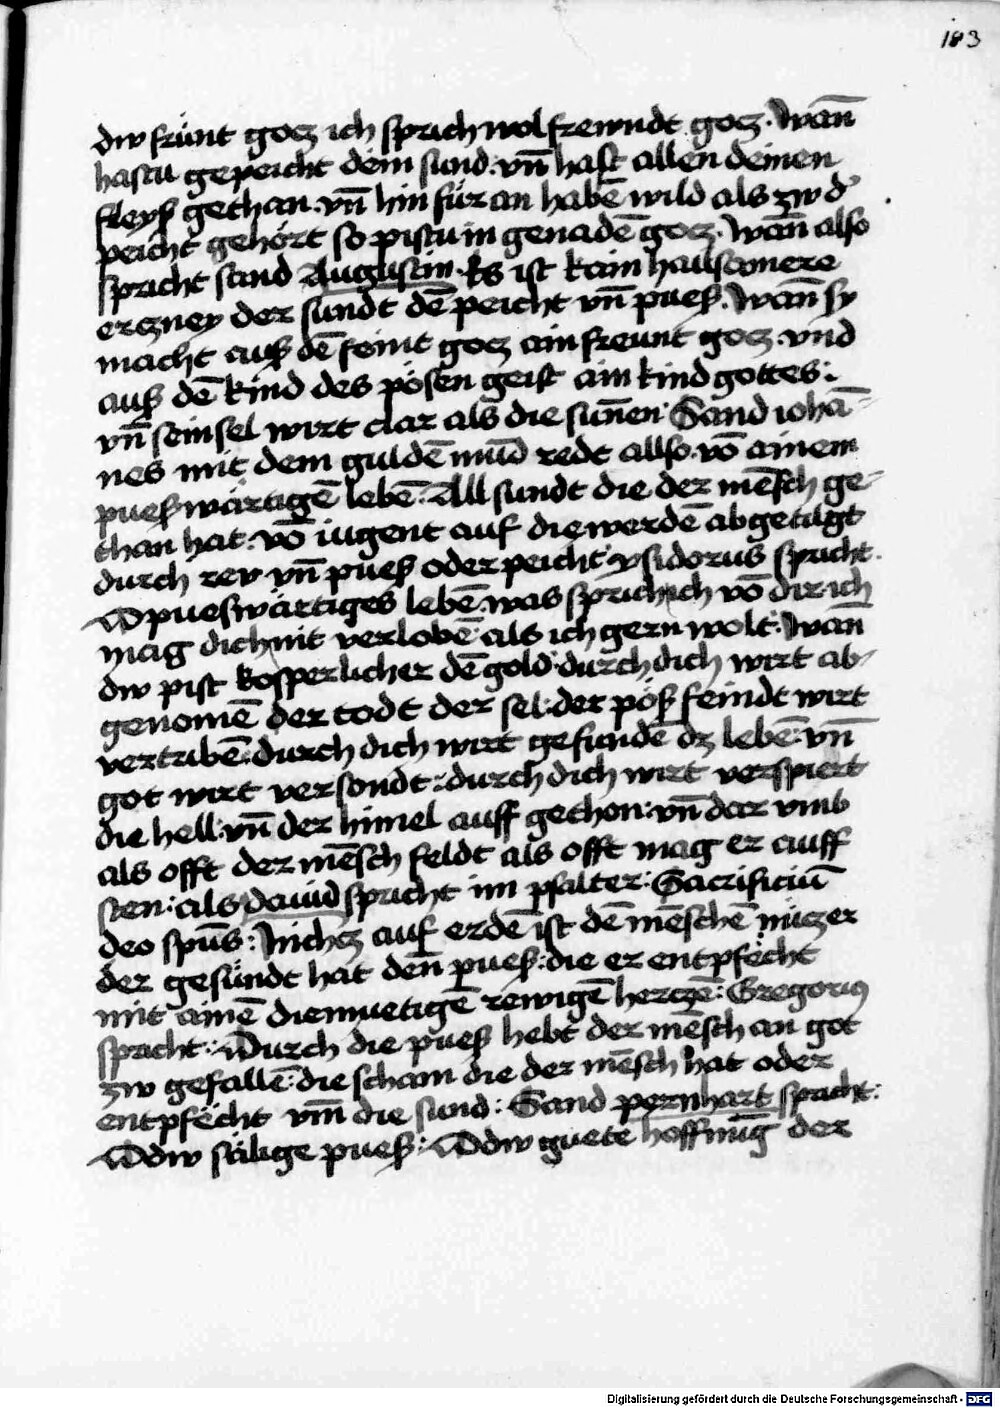 183
dw frünt gocz ich sprich wol frewndt gocz. Wan̄
hastu gepeicht dein sund. vn̄ hast allen deinen
fleyß gethan. vn̄ hin für an habē wild als zw d'
peicht gehört so pistu in genadē gocz. Wan̄ also
spricht sand Augustin. Es ist kain hailsamere
erczney der sundt dē peicht vn̄ pueß. Wan̄ sy
macht auß dē feint gocz ain freunt gocz. vnd
auß dē kind des pösen geist ain kind gottes:
vn̄ sein sel wirt clar als die sun̄en. Sand iohā-
nes mit dem guldē mūd redt allso. vō ainem
pueßwärtigē lebē. All sundt die der mēsch ge-
than hat. vō iugent auf die werdē abgetilgt
durch rev vn̄ pueß oder peicht. ysidorus spricht.
O pueswärtiges lebē. was sprich ich vō dir. ich
mag dich nit verlobē als ich gern wolt. Wan̄
dw pist kosperlicher dē gold. durch dich wirt ab-
genomē der todt der sel: der pöß feindt wirt
vertribē: durch dich wirt gefundē dz lebē: vn̄
got wirt versondt: durch dich wirt verspiert
die hell: vn̄ der himel auff gethon: vn̄ dar vmb
als offt der mēsch feldt als offt mag er auff
sten: als dauid spricht im psalter: Sacrificiū
deo spūs: Nichcz auf erdē ist dē mēschē nüczer
der gesündt hat den̄ pueß: die er entpfëcht
mit ainē diemuetigē rewigē herczē: Gregorius
spricht: Durch die pueß hebt der mēsch an got
zw gefallē: die scham die der mēsch hat oder
entpfëcht vm̄ die sund: Sand pernhart spricht:
O dw sälige pueß: O dw guete hoffnūg der
Digitalisierung gefördert durch die Deutsche Forschungsgemeinschaft - DFG